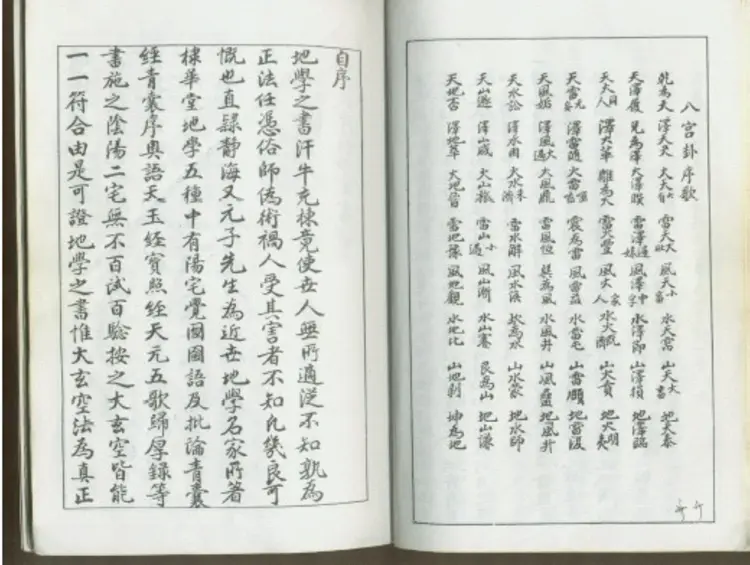 八宮卦序歌
乾為天 澤天夬 火天大有 雷天大壯 風天小畜 水天需 山天大畜 地天泰
天澤履 兌為澤 火澤睽 雷澤歸妹 風澤中孚 水澤節 山澤損 地澤臨
天火同人 澤火革 離為火 雷火豐 風火家人 水火既濟 山火賁 地火明夷
天雷无妄 澤雷隨 火雷噬嗑 震為雷 風雷益 水雷屯 山雷頤 地雷復
天風姤 澤風大過 火風鼎 雷風恒 巽為風 水風井 山風蠱 地風升
天水訟 澤水困 火水未濟 雷水解 風水渙 坎為水 山水蒙 地水師
天山遯 澤山咸 火山旅 雷山小過 風山漸 水山蹇 艮為山 地山謙
天地否 澤地萃 火地晉 雷地豫 風地觀 水地比 山地剝 坤為地
自序
地學之書汗牛充棟竟使世人無所適從不知孰為
正法任憑俗師偽術禍人受其害者不知凡幾良可
慨也直隸靜海又元子先生為近世地學名家所著
棣華堂地學五種中有陽宅覺圖圖語及批論青囊
經青囊序奧語天玉經寶照經天元五歌歸厚錄等
書施之陰陽二宅無不百試百驗按之大玄空皆能
一一符合由是可證地學之書惟大玄空法為真正